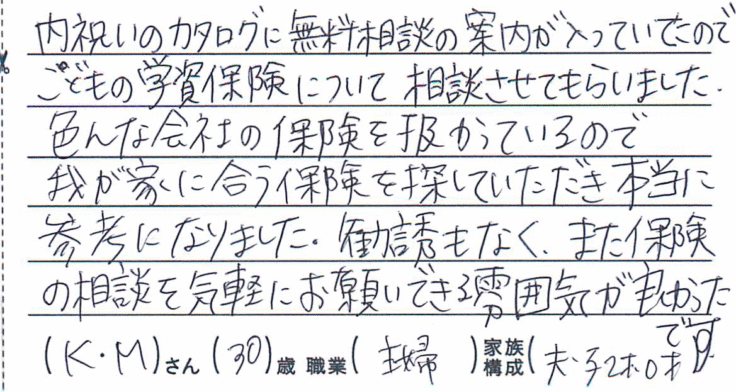 内祝いのカタログに無料相談の案内が入っていたので
こどもの学資保険について相談させてもらいました.
色んな会社の保険を扱かっているので
我が家に合う保険を探していただき本当に
参考になりました. 勧誘もなく、また保険
の相談を気軽にお願いできる雰囲気が良かった
です。
(K・M)さん (30)歳 職業( 主婦 )家族構成( 夫・子2才・0才 )